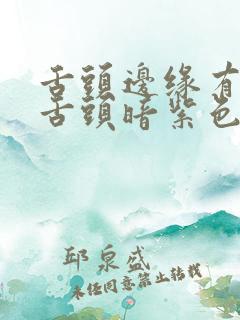 舌頭邊緣有
舌頭暗紫色
邱泉盛
未任同意禁止转载